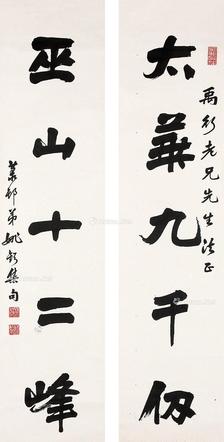 禹衍老兄先生法正
太華九千仞
巫山十二峰
姚
集句